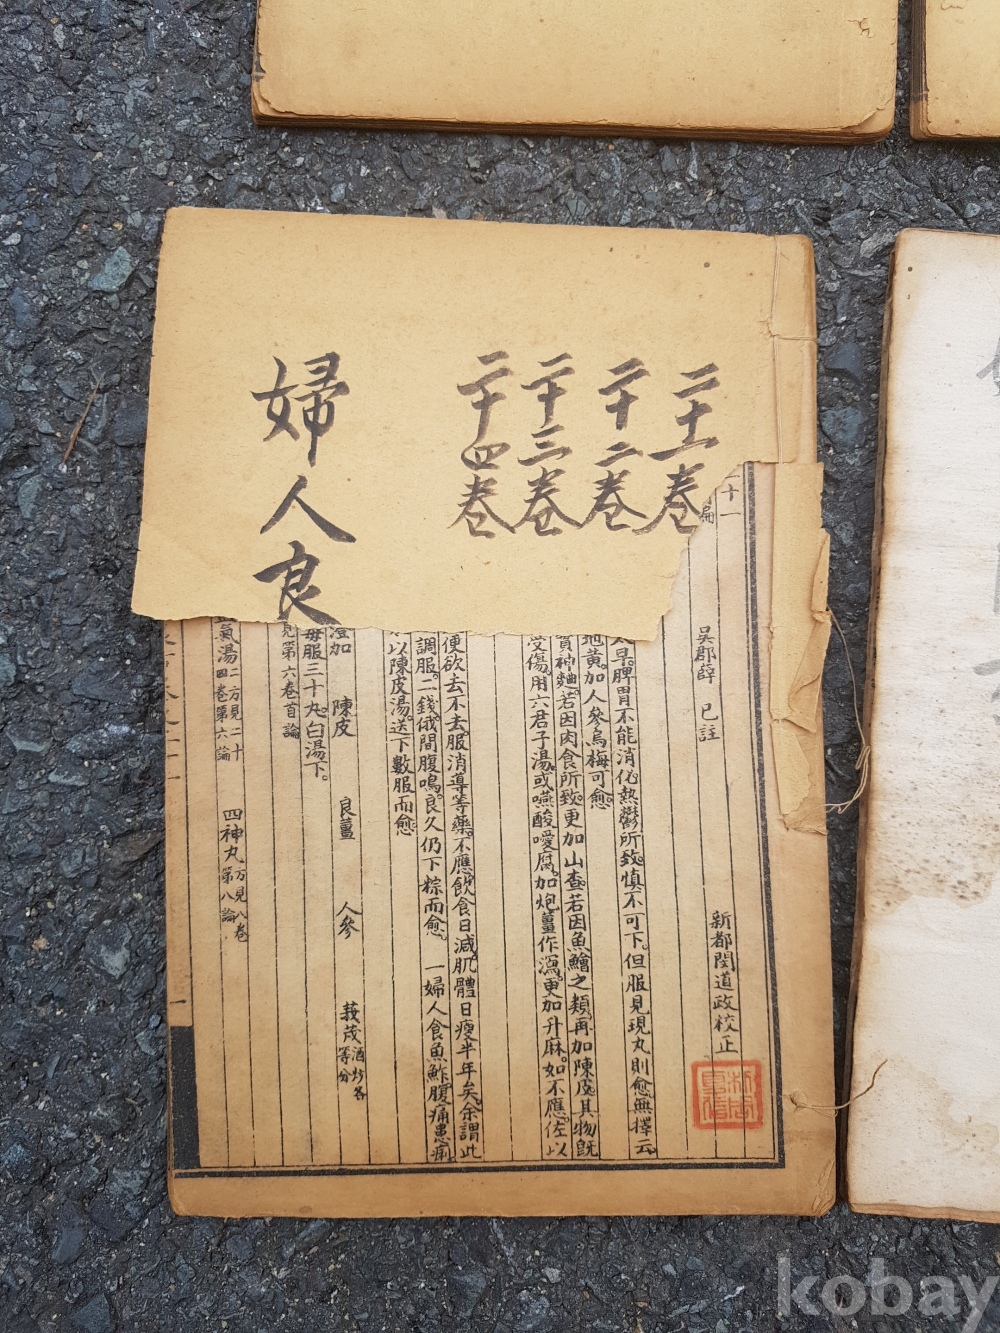 二十一卷
二十二卷
二十三卷
二十四卷
婦人良
二十一
吳郡薛 已註
新都閔道政校正
旱。脾胃不能消化。熱鬱所致。慎不可下。但服見現丸則愈。無擇云
地黃。加人參烏梅可愈。
神麯。若因肉食所致。更加山查。若因魚鱠之類。再加陳皮。其物旣
受傷。用六君子湯。或嚥酸噯腐。加炮薑作瀉。更加升麻。如不應。佐以
便欲去不去。服消導等藥。不應。飲食日減。肌體日瘦半年矣。余謂此
調服。二錢。俄間腹鳴。良久仍下粽而愈。 一婦人食魚鮓腹痛患痢
以陳皮湯。送下數服而愈
澄茄 陳皮 良薑 人參 莪茂酒炒各等分
每服三十丸。白湯下。
見第六卷首論
氣湯二方見二十四卷第六論 四神丸方見八卷第八論
一
kobay